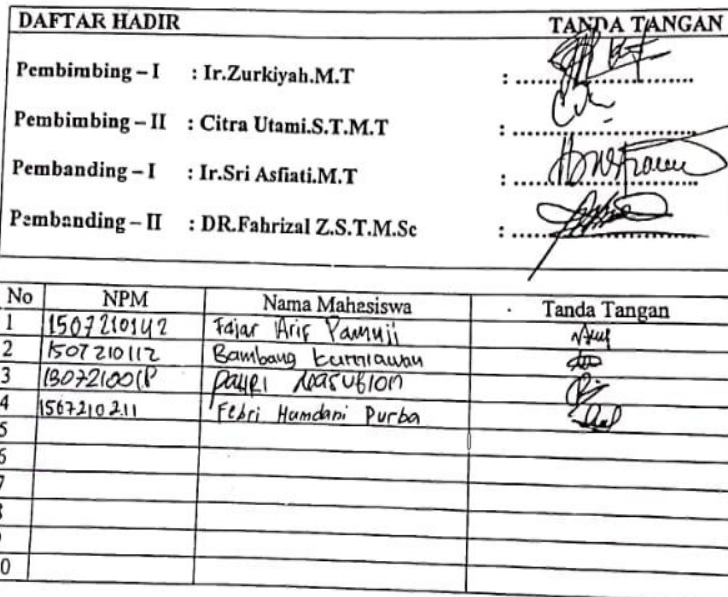 DAFTAR HADIR TANDA TANGAN
Pembimbing – I : Ir.Zurkiyah.M.T : ..............................
Pembimbing – II : Citra Utami.S.T.M.T : ..............................
Pembanding – I : Ir.Sri Asfiati.M.T : ..............................
Pembanding – II : DR.Fahrizal Z.S.T.M.Sc : ..............................
No NPM Nama Mahasiswa Tanda Tangan
1 1507210142 Fajar Arif Pamuji
2 1507210112 Bambang Kurniawan
3
4 1507210211 Febri Hamdani Purba
5
6
7
8
0